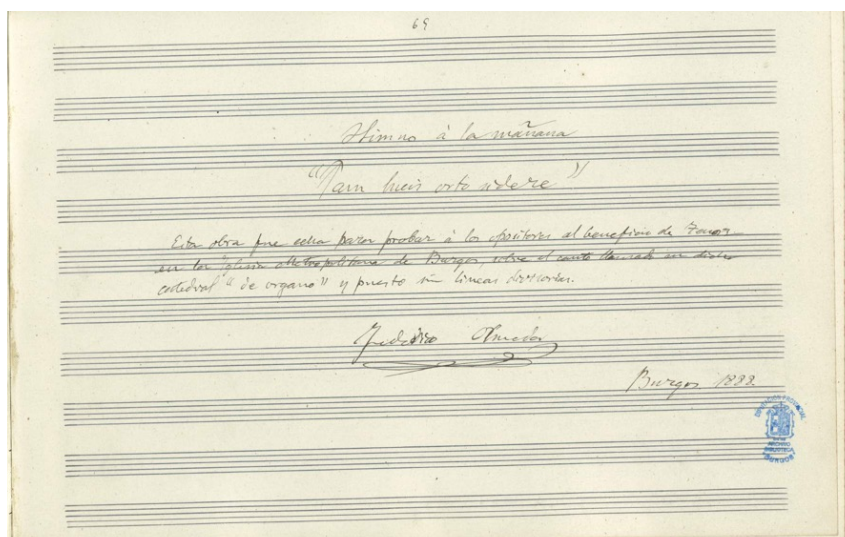 69
Himno à la mañana
"Jam lucis orto sidere"
Esta obra fue echa para probar à los opositores al beneficio de Tenor
en la Iglesia Metropolitana de Burgos, sobre el canto llamado en dicha
catedral "de organo" y puesto sin lineas divisorias.
Federico Olmeda
Burgos 1888
DIPUTACION PROVINCIAL
ARCHIVO
BIBLIOTECA
BURGOS